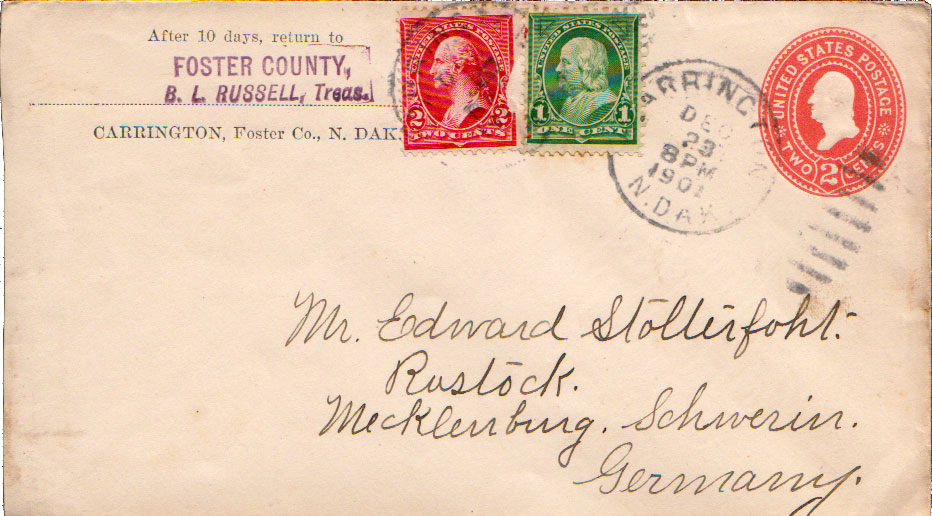 After 10 days, return to
FOSTER COUNTY,
B. L. RUSSELL, Treas.
CARRINGTON, Foster Co., N. DAK.
UNITED STATES POSTAGE
2 2
TWO CENTS
UNITED STATES POSTAGE
1 1
ONE CENT
CARRINGTON
DEC
23
8PM
1901
N. DAK
UNITED STATES POSTAGE
TWO 2 CENTS
Mr. Edward Stolterfoht.
Rostock.
Mecklenburg. Schwerin.
Germany.